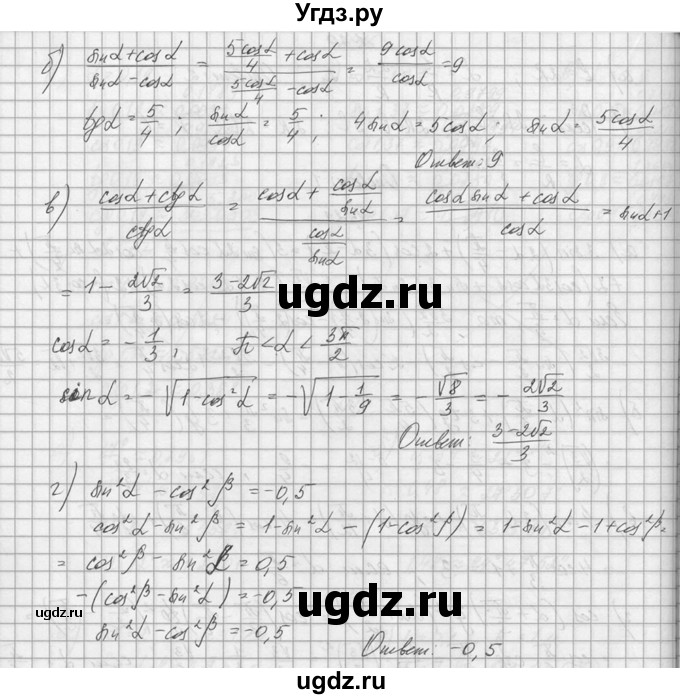 Угдз.ру
б) (sinα + cosα)/(sinα − cosα) = (5cosα/4 + cosα)/(5cosα/4 − cosα) = 9cosα/cosα = 9
tgα = 5/4 ; sinα/cosα = 5/4 ; 4sinα = 5cosα ; sinα = 5cosα/4
Ответ: 9
в) (cosα + ctgα)/ctgα = (cosα + cosα/sinα)/(cosα/sinα) = (cosα sinα + cosα)/cosα = sinα+1
= 1 − 2√2/3 = (3−2√2)/3
ugdz.ru
cosα = −1/3 , π < α < 3π/2
sinα = −√(1−cos²α) = −√(1−1/9) = −√8/3 = −2√2/3
Ответ: (3−2√2)/3
ugdz.ru
г) sin²α − cos²β = −0,5
cos²α − sin²β = 1−sin²α − (1−cos²β) = 1−sin²α −1+cos²β =
= cos²β − sin²α = 0,5
−(cos²β − sin²α) = −0,5
ugdz.ru
ugdz.ru
sin²α − cos²β = −0,5
Ответ: −0,5
ugdz.ru